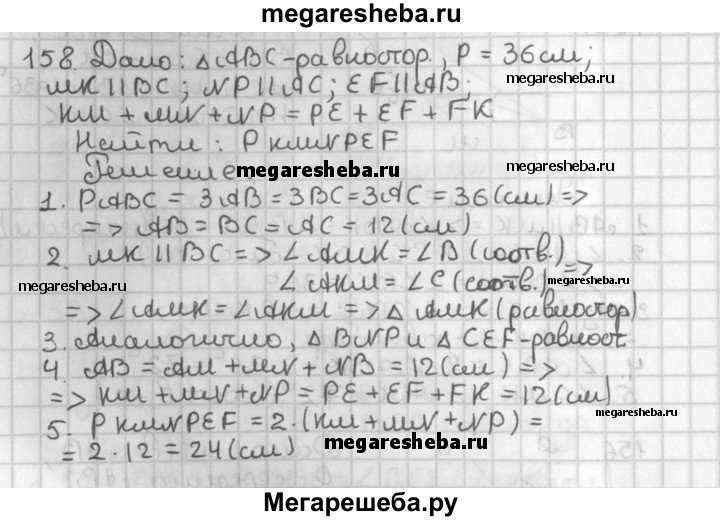 megaresheba.ru
158. Дано: △ABC-равностор., P = 36 см;
MK || BC; NP || AC; EF || AB;
megaresheba.ru
KM + MN + NP = PE + EF + FK
Найти: P KMNPEF
megaresheba.ru
Решение
megaresheba.ru
1. PABC = 3AB = 3BC = 3AC = 36 (см) =>
=> AB = BC = AC = 12 (см)
2. MK || BC => ∠AMK = ∠B (соотв.)
∠AKM = ∠C (соотв.) =>
megaresheba.ru
megaresheba.ru
=> ∠AMK = ∠AKM => △ AMK (равностор)
3. Аналогично, △ BNP и △ CEF-равност.
4. AB = AM + MN + NB = 12 (см) =>
=> KM + MN + NP = PE + EF + FK = 12 (см)
megaresheba.ru
5. P KMNPEF = 2·(KM + MN + NP) =
= 2·12 = 24 (см)
megaresheba.ru
Мегарешеба.ру